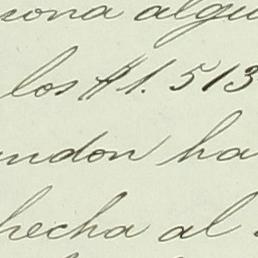 sona algu
los $1.513
ndon ha
hecha al